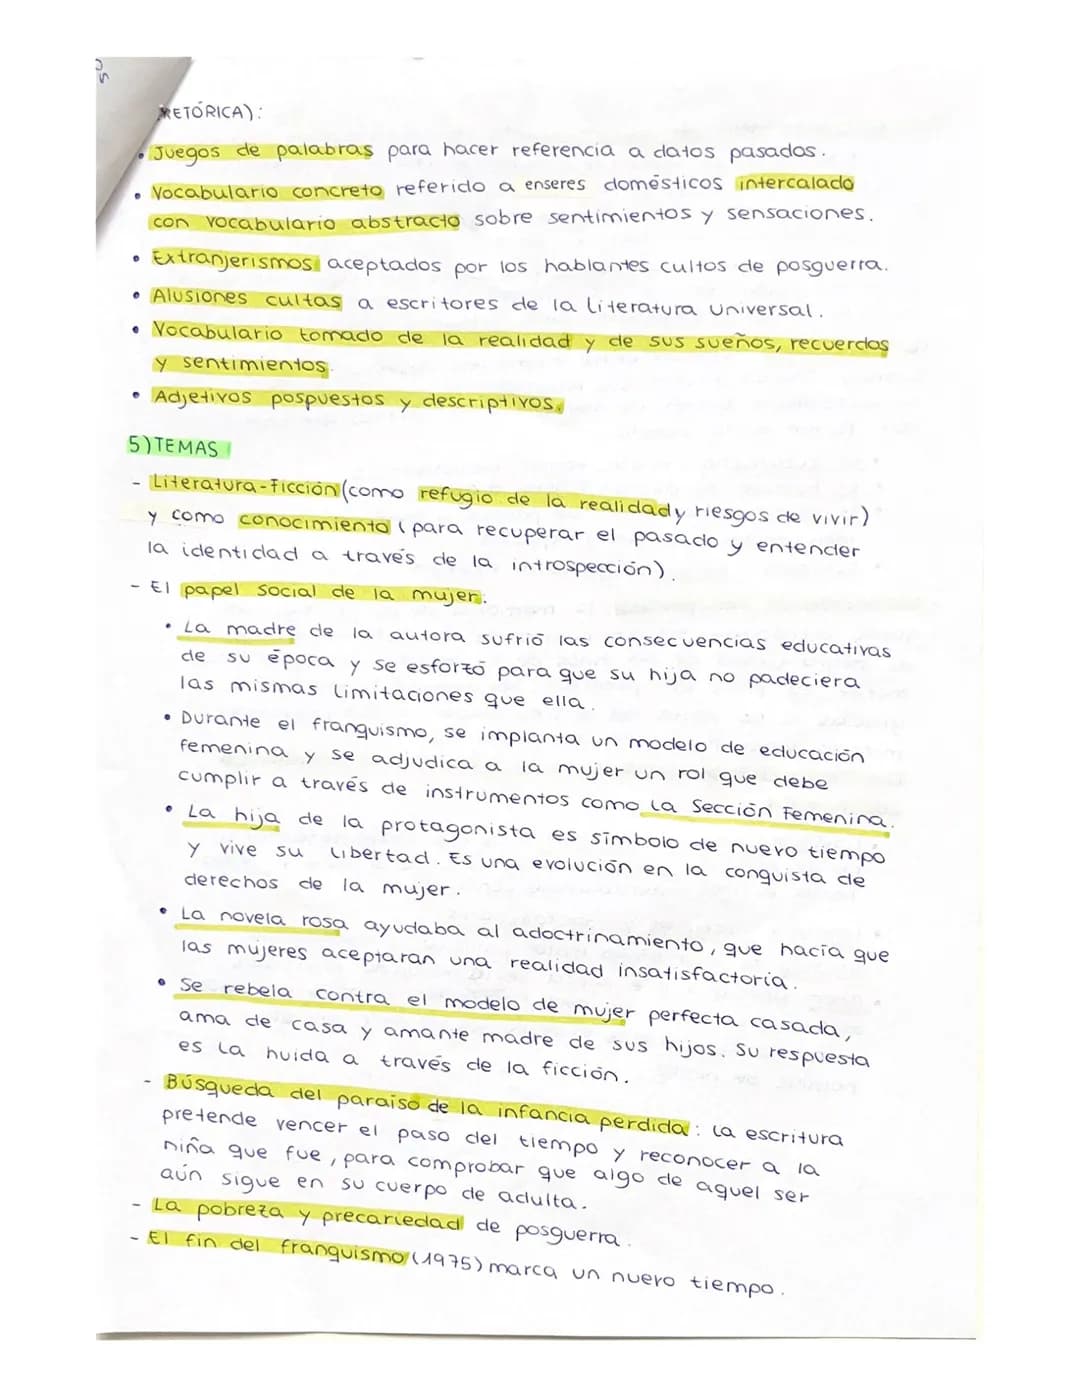 RETÓRICA):
• Juegos de palabras para hacer referencia a datos pasados.
• Vocabulario concreto referido a enseres domésticos intercalado
con vocabulario abstracto sobre sentimientos y sensaciones.
• Extranjerismos aceptados por los hablantes cultos de posguerra.
• Alusiones cultas a escritores de la literatura universal.
• Vocabulario tomado de la realidad y de sus sueños, recuerdos
y sentimientos.
• Adjetivos pospuestos y descriptivos.
5) TEMAS
- Literatura-Ficción (como refugio de la realidad y riesgos de vivir)
y como conocimiento (para recuperar el pasado y entender
la identidad a través de la introspección).
- El papel social de la mujer:
• La madre de la autora sufrió las consecuencias educativas
de su época y se esforzó para que su hija no padeciera
las mismas limitaciones que ella.
• Durante el franquismo, se implanta un modelo de educación
femenina y se adjudica a la mujer un rol que debe
cumplir a través de instrumentos como la Sección Femenina.
• La hija de la protagonista es símbolo de nuevo tiempo
y vive su libertad. Es una evolución en la conquista de
derechos de la mujer.
• La novela rosa ayudaba al adoctrinamiento, que hacía que
las mujeres aceptaran una realidad insatisfactoria.
• Se rebela contra el modelo de mujer perfecta casada,
ama de casa y amante madre de sus hijos. Su respuesta
es la huida a través de la ficción.
- Búsqueda del paraíso de la infancia perdida: la escritura
pretende vencer el paso del tiempo y reconocer a la
niña que fue, para comprobar que algo de aquel ser
aún sigue en su cuerpo de adulta.
- La pobreza y precariedad de posguerra.
- El fin del franquismo (1975) marca un nuevo tiempo.